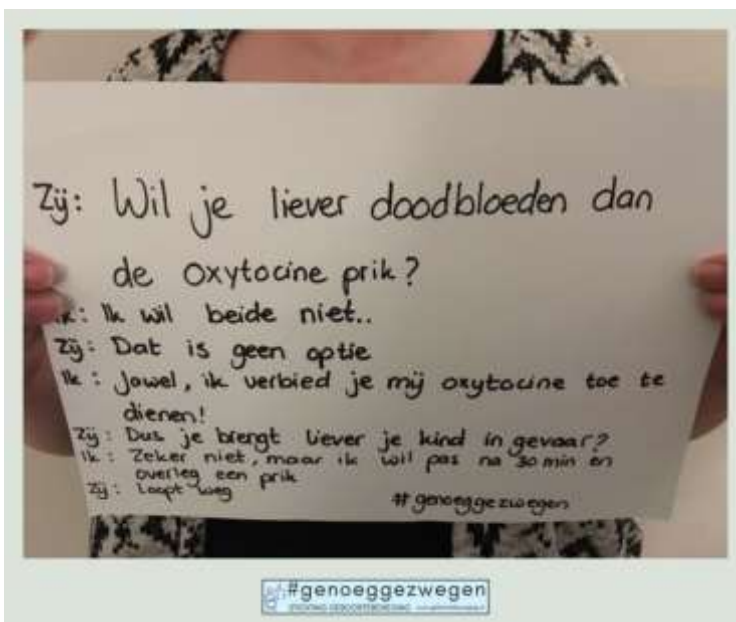 Zij: Wil je liever doodbloeden dan
de oxytocine prik?
Ik: Ik wil beide niet..
Zij: Dat is geen optie
Ik: Jawel, ik verbied je mij oxytocine toe te
dienen!
Zij: Dus je brengt liever je kind in gevaar?
Ik: Zeker niet, maar ik wil pas na 30 min en
overleg een prik
Zij: loopt weg
#genoeggezwegen
#genoeggezwegen
STICHTING GEBOORTEBEWEGING